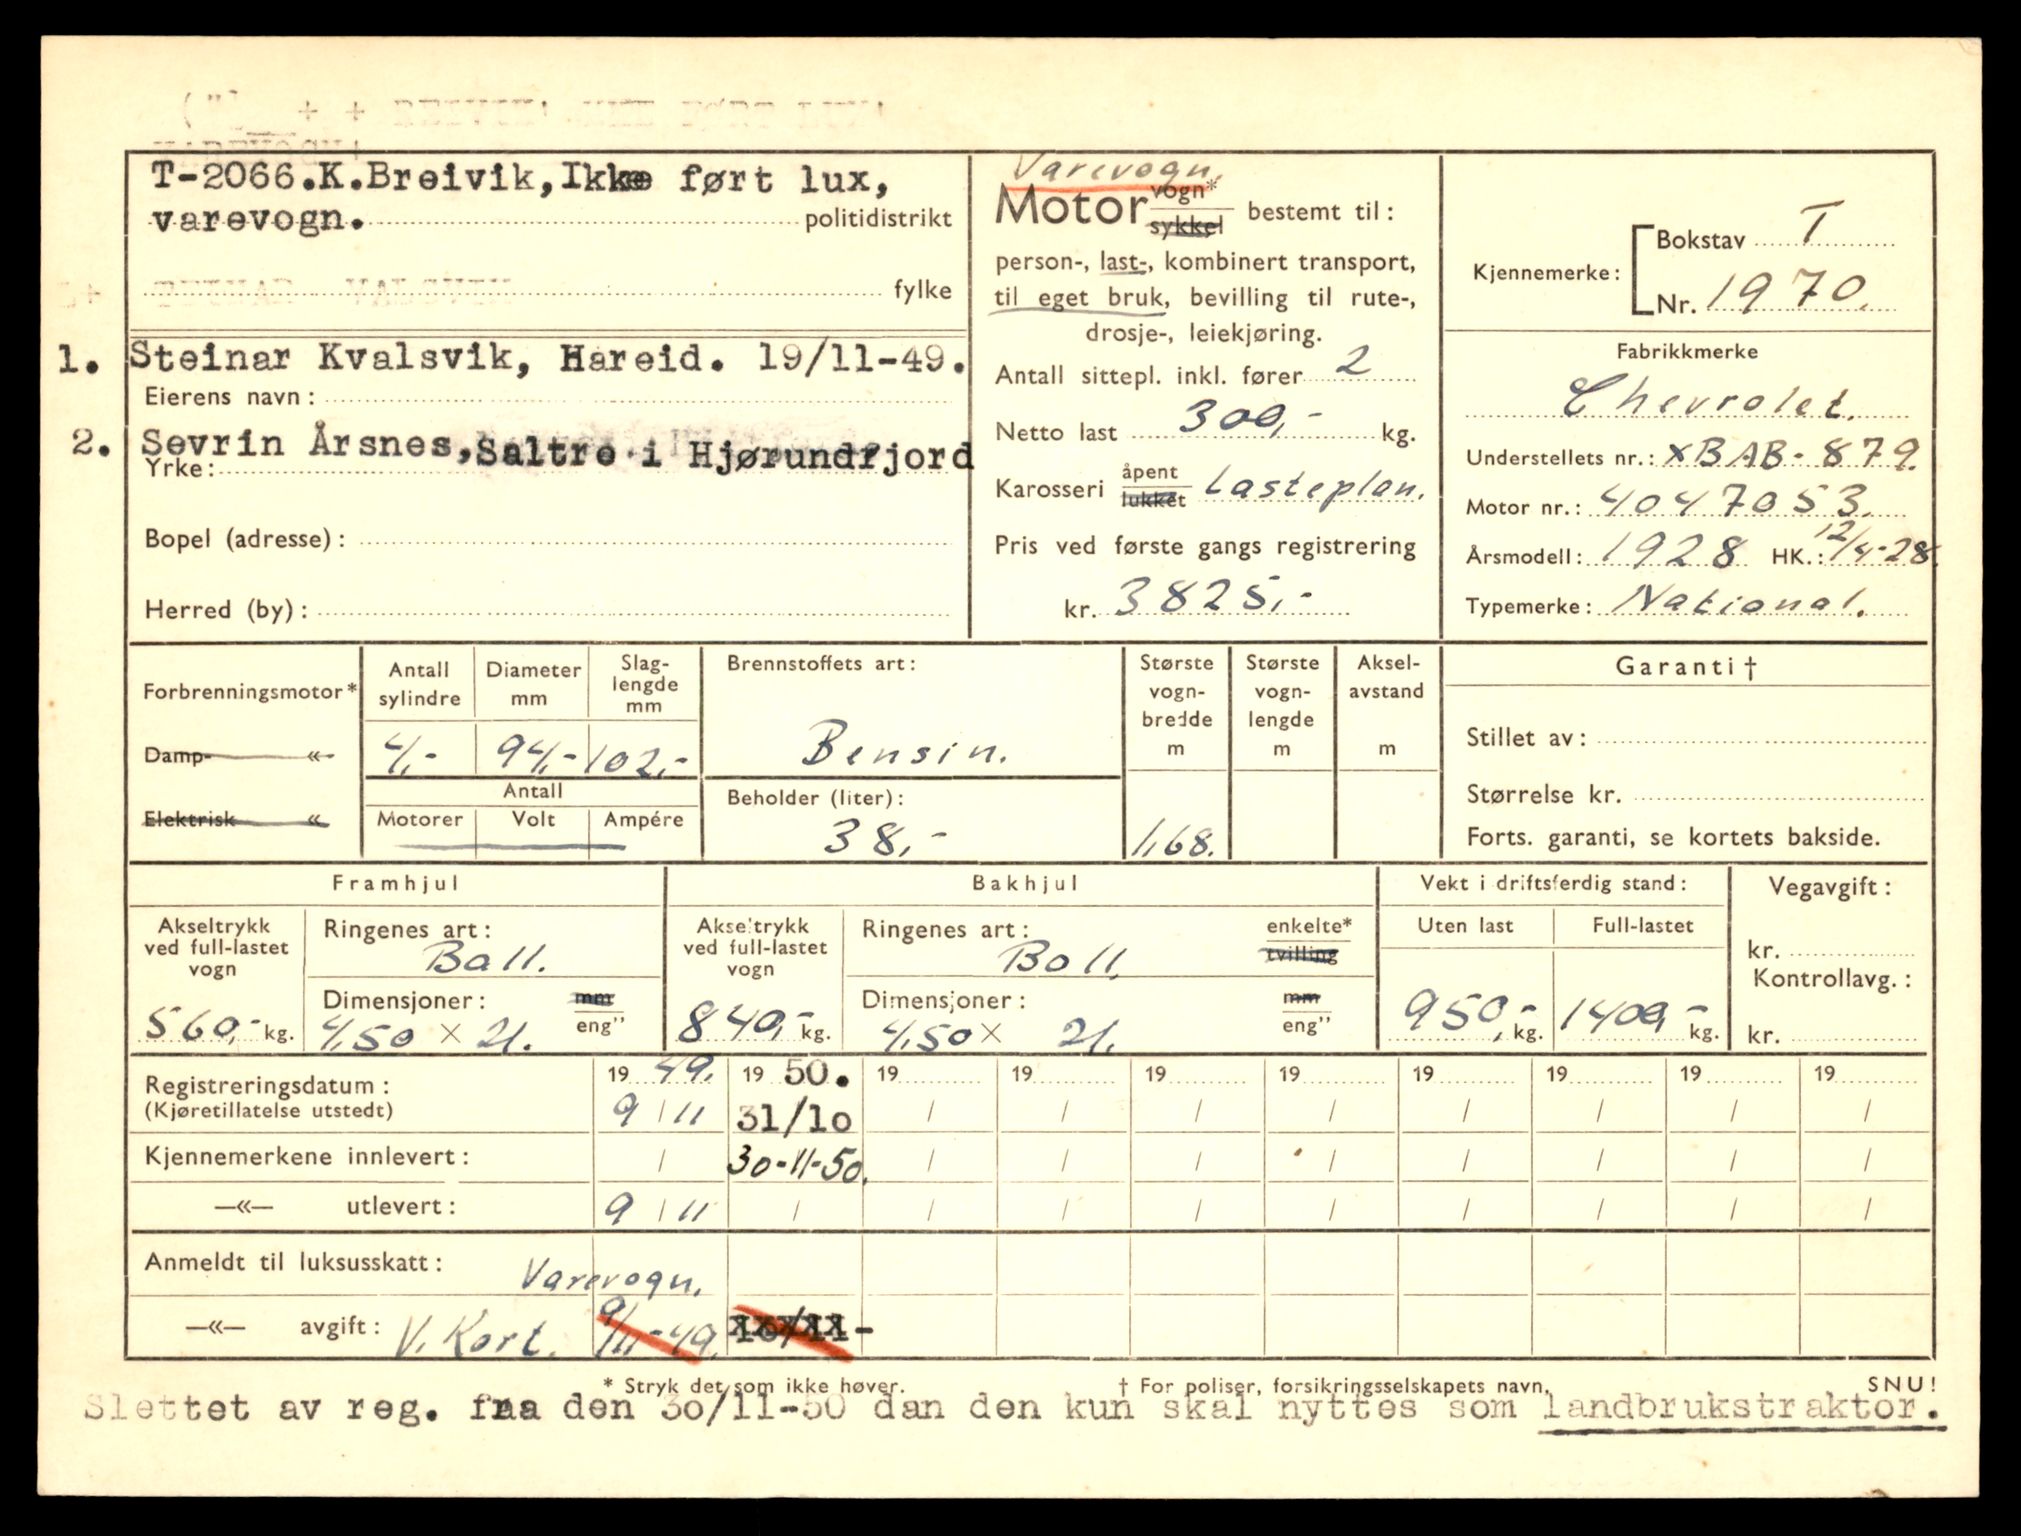 T-2066.K.Breivik,Ikke ført lux,
varevogn. politidistrikt
fylke
1. Steinar Kvalsvik, Hareid. 19/11-49.
Eierens navn:
2. Sevrin Årsnes, Saltre i Hjørundfjord
Yrke:
Bopel (adresse):
Herred (by):
Varevogn.
Motor vogn* sykkel bestemt til:
person-, last-, kombinert transport,
til eget bruk, bevilling til rute-,
drosje-, leiekjøring.
Antall sittepl. inkl. fører 2
Netto last 300,- kg.
Karosseri åpent lukket Lasteplan.
Pris ved første gangs registrering
kr. 3825,-
Kjennemerke: Bokstav T
Nr. 1970.
Fabrikkmerke
Chevrolet.
Understellets nr.: xBAB-879.
Motor nr.: 4047053.
Årsmodell: 1928 HK.: 12/4-28.
Typemerke: National.
Forbrenningsmotor*
Damp- «-
Elektrisk «
Antall sylindre
4,-
Diameter mm
94,-
Slag-lengde mm
102,-
Antall
Motorer Volt Ampére
Brennstoffets art:
Bensin.
Beholder (liter):
38,-
Største vogn-bredde m
1,68.
Største vogn-lengde m
Aksel-avstand m
Garanti †
Stillet av:
Størrelse kr.
Forts. garanti, se kortets bakside.
Framhjul
Akseltrykk ved full-lastet vogn
560,- kg.
Ringenes art:
Ball.
Dimensjoner: mm eng"
4,50 × 21.
Bakhjul
Akseltrykk ved full-lastet vogn
840,- kg.
Ringenes art: enkelte* tvilling
Boll.
Dimensjoner: mm eng"
4,50 × 21.
Vekt i driftsferdig stand:
Uten last Full-lastet
950,- kg. 1400,- kg.
Vegavgift:
kr.
Kontrollavg.:
kr.
19 49. 19 50. 19 19 19 19 19 19 19 19
Registreringsdatum:
(Kjøretillatelse utstedt) 9/11 31/10 / / / / / / / /
Kjennemerkene innlevert: / 30-11-50. / / / / / / / /
—«— utlevert: 9/11 / / / / / / / / /
Anmeldt til luksusskatt: Varevogn.
—«— avgift: V. Kort. 9/11-49.
* Stryk det som ikke høver. † For poliser, forsikringsselskapets navn. SNU!
Slettet av reg. fra den 30/11-50 dan den kun skal nyttes som landbrukstraktor.